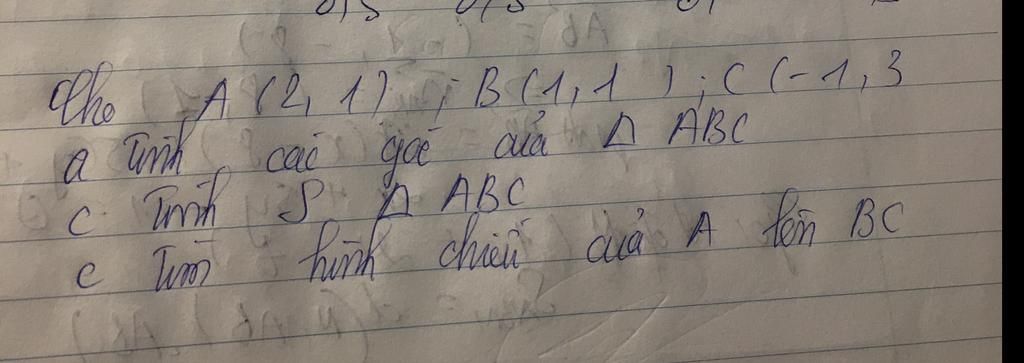 Cho A (2, 1) ; B (1, 1) ; C (-1, 3
a Tính các góc của Δ ABC
c Tính S Δ ABC
c Tìm hình chiếu của A lên BC